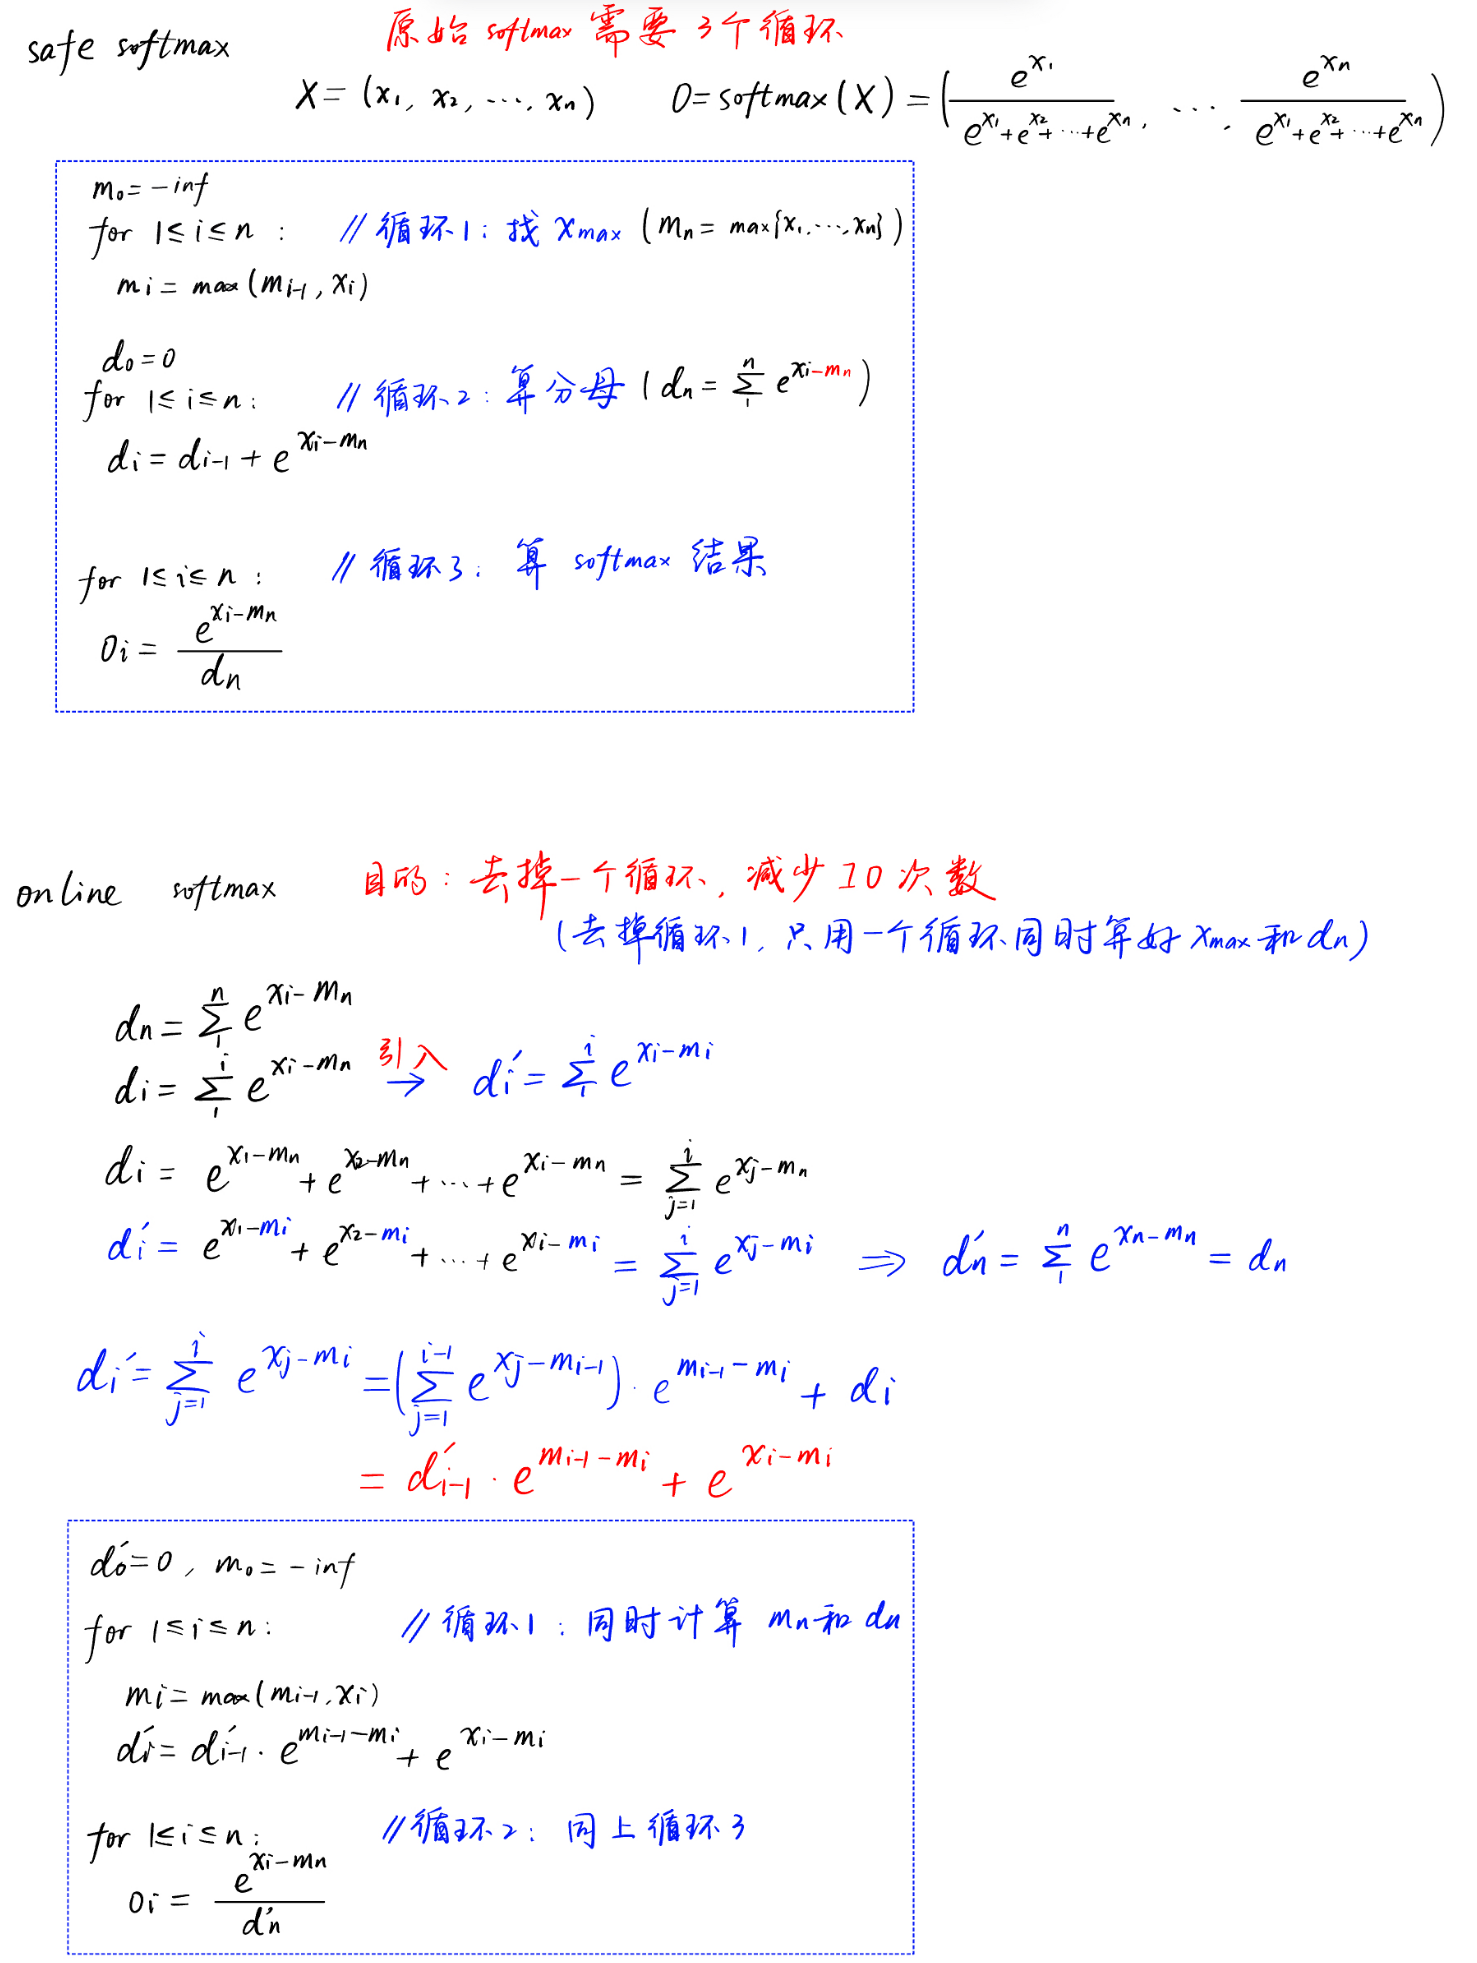 safe softmax 原始 softmax 需要 3个循环
X = (x₁, x₂, ⋯, xₙ) O = softmax(X) = (e^{x₁} / (e^{x₁}+e^{x₂}+⋯+e^{xₙ}), ⋯, e^{xₙ} / (e^{x₁}+e^{x₂}+⋯+e^{xₙ}))
m₀ = -inf
for 1≤i≤n : // 循环1: 找 x_{max} (mₙ = max{x₁,⋯,xₙ})
mᵢ = max(m_{i-1}, xᵢ)
d₀ = 0
for 1≤i≤n : // 循环2: 算分母 (dₙ = Σ_{1}^{n} e^{xᵢ-mₙ})
dᵢ = d_{i-1} + e^{xᵢ-mₙ}
for 1≤i≤n : // 循环3: 算 softmax 结果
Oᵢ = e^{xᵢ-mₙ} / dₙ
online softmax 目的: 去掉一个循环, 减少IO次数
(去掉循环1, 只用一个循环同时算好 x_{max} 和 dₙ)
dₙ = Σ_{1}^{n} e^{xᵢ-mₙ}
dᵢ = Σ_{1}^{i} e^{xᵢ-mₙ} 引入 → dᵢ′ = Σ_{1}^{i} e^{xᵢ-mᵢ}
dᵢ = e^{x₁-mₙ} + e^{x₂-mₙ} + ⋯ + e^{xᵢ-mₙ} = Σ_{j=1}^{i} e^{xⱼ-mₙ}
dᵢ′ = e^{x₁-mᵢ} + e^{x₂-mᵢ} + ⋯ + e^{xᵢ-mᵢ} = Σ_{j=1}^{i} e^{xⱼ-mᵢ} ⇒ dₙ′ = Σ_{1}^{n} e^{xₙ-mₙ} = dₙ
dᵢ′ = Σ_{j=1}^{i} e^{xⱼ-mᵢ} = (Σ_{j=1}^{i-1} e^{xⱼ-m_{i-1}}) · e^{m_{i-1}-mᵢ} + dᵢ
= d′_{i-1} · e^{m_{i-1}-mᵢ} + e^{xᵢ-mᵢ}
d₀′ = 0, m₀ = -inf
for 1≤i≤n : // 循环1: 同时计算 mₙ和 dₙ
mᵢ = max(m_{i-1}, xᵢ)
dᵢ′ = d′_{i-1} · e^{m_{i-1}-mᵢ} + e^{xᵢ-mᵢ}
for 1≤i≤n : // 循环2: 同上循环3
Oᵢ = e^{xᵢ-mₙ} / dₙ′